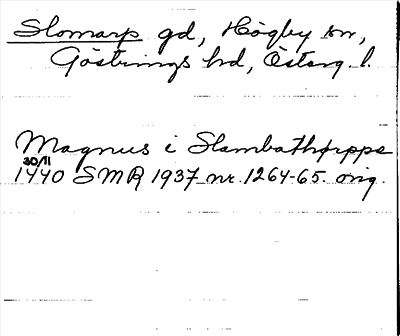 Slomarp gd, Högby sn,
Göstrings hd, Österg. l.
Magnus i Slambathorppa
30/11
1440 SMR 1937 nr. 1264-65. orig.